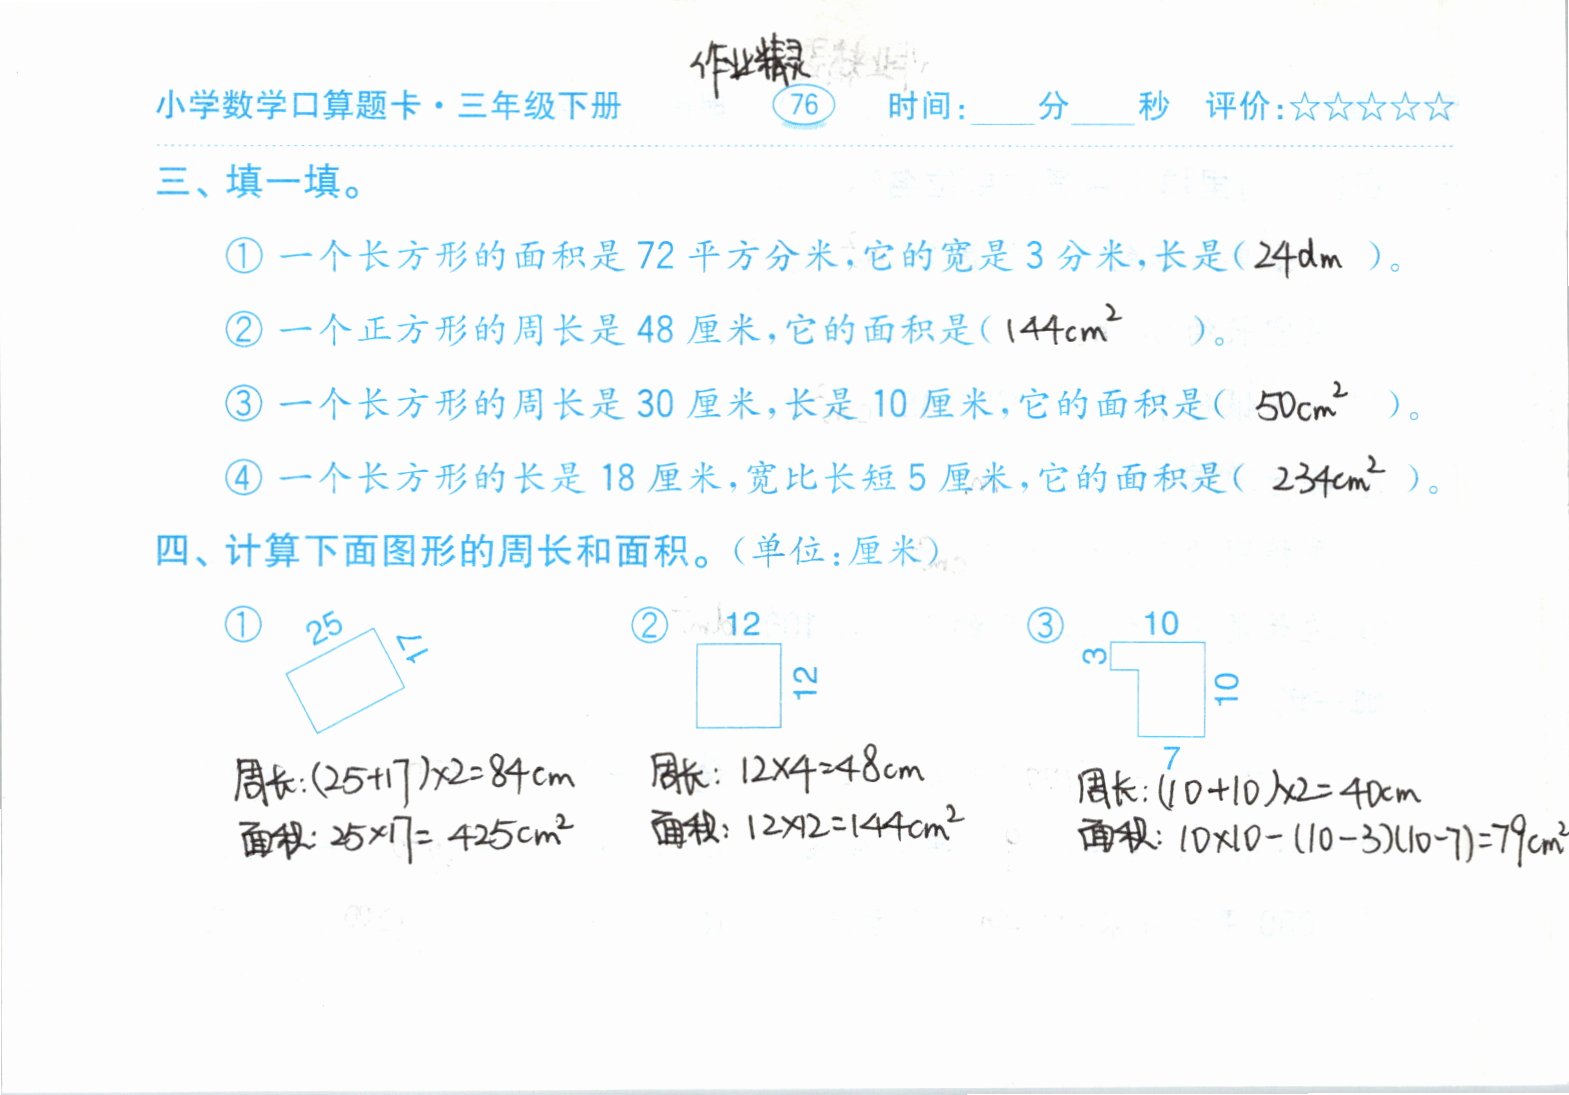 作业精灵
小学数学口算题卡·三年级下册 76 时间:____分____秒 评价:☆☆☆☆☆
三、填一填。
① 一个长方形的面积是 72 平方分米,它的宽是 3 分米,长是( 24dm )。
② 一个正方形的周长是 48 厘米,它的面积是( 144cm² )。
③ 一个长方形的周长是 30 厘米,长是 10 厘米,它的面积是( 50cm² )。
④ 一个长方形的长是 18 厘米,宽比长短 5 厘米,它的面积是( 234cm² )。
四、计算下面图形的周长和面积。(单位:厘米)
① 25 17
周长:(25+17)×2=84cm
面积:25×17=425cm²
② 12 12
周长:12×4=48cm
面积:12×12=144cm²
③ 10 3 10 7
周长:(10+10)×2=40cm
面积:10×10-(10-3)(10-7)=79cm²